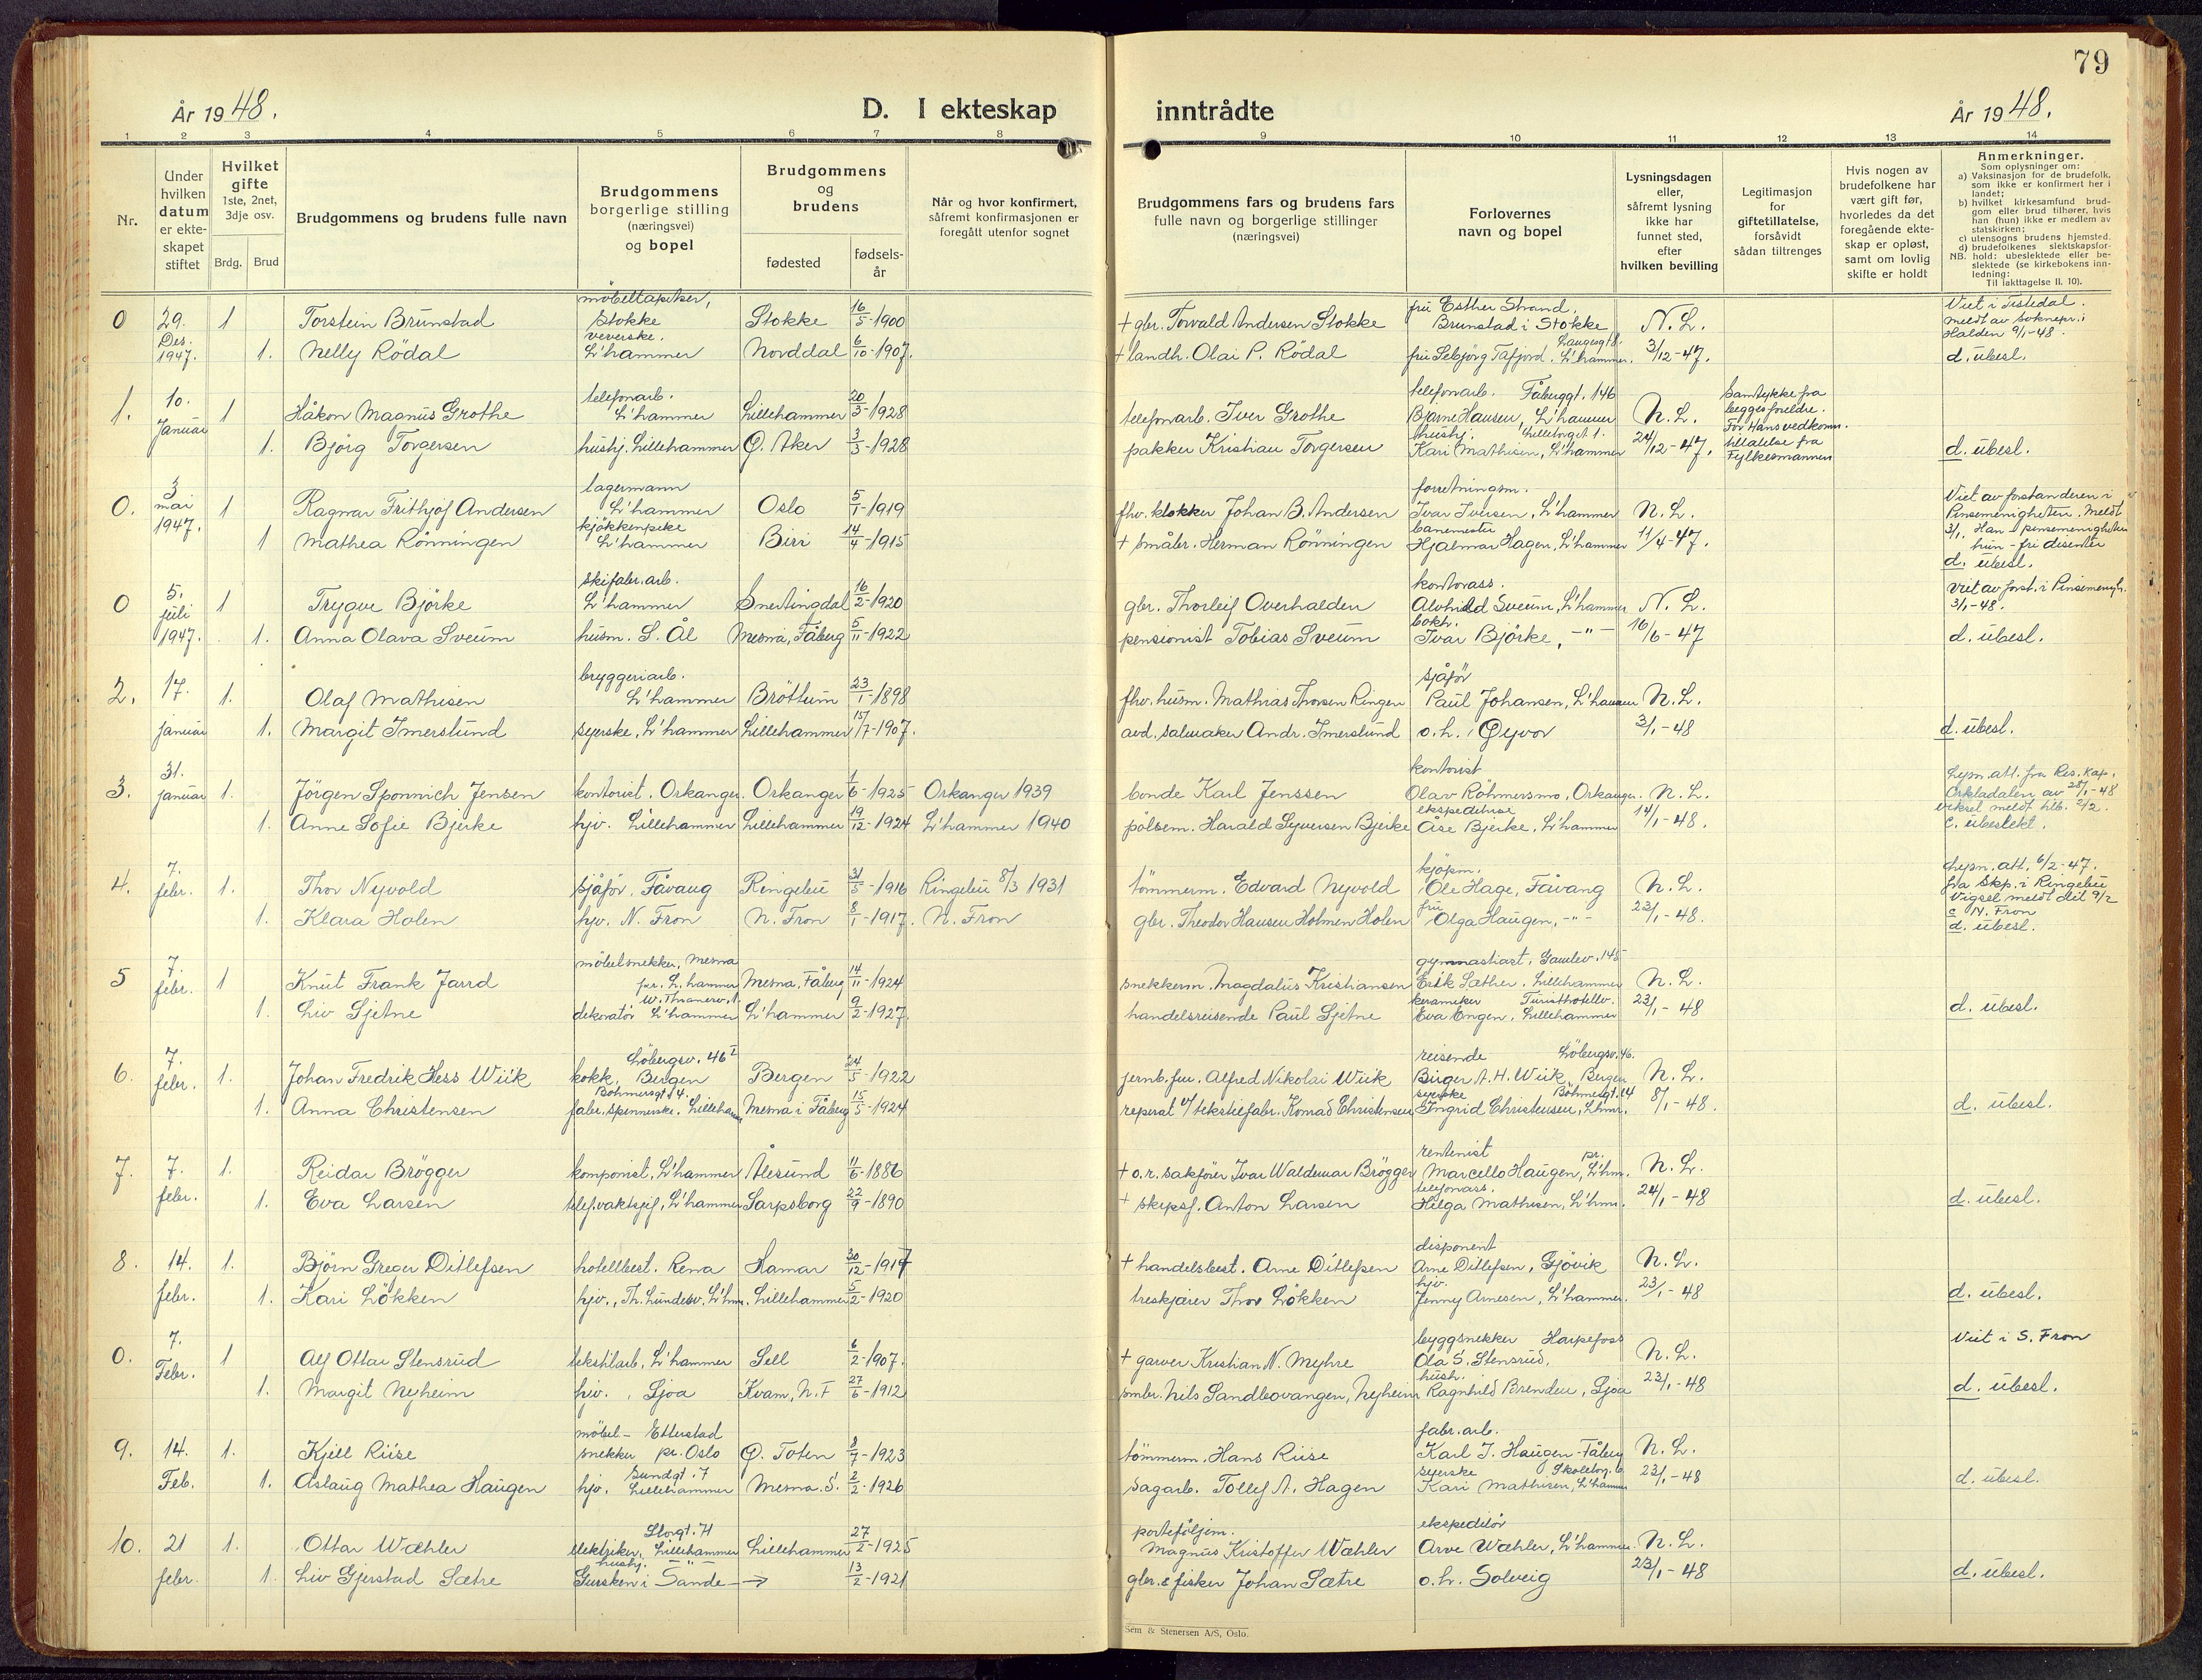 79
År 1948.
D. I ekteskap
inntrådte
År 1948.
1 2 3 4 5 6 7 8 9 10 11 12 13 14
Nr.
Under hvilken datum er ekteskapet stiftet
Hvilket gifte 1ste, 2net, 3dje osv.
Brdg. Brud
Brudgommens og brudens fulle navn
Brudgommens borgerlige stilling (næringsvei) og bopel
Brudgommens og brudens
fødested
fødselsår
Når og hvor konfirmert, såfremt konfirmasjonen er foregått utenfor sognet
Brudgommens fars og brudens fars fulle navn og borgerlige stillinger (næringsvei)
Forlovernes navn og bopel
Lysningsdagen eller, såfremt lysning ikke har funnet sted, efter hvilken bevilling
Legitimasjon for giftetillatelse, forsåvidt sådan tiltrenges
Hvis nogen av brudefolkene har vært gift før, hvorledes da det foregående ekteskap er opløst, samt om lovlig skifte er holdt
Anmerkninger.
Som oplysninger om:
a) Vaksinasjon for de brudefolk, som ikke er konfirmert her i landet;
b) hvilket kirkesamfund brudgom eller brud tilhører, hvis han (hun) ikke er medlem av statskirken;
c) utensogns brudens hjemsted.
d) brudefolkenes slektskapsforhold: ubeslektede eller beslektede (se kirkebokens innledning:
NB.
Til iakttagelse II. 10).
0 29. Des. 1947. 1 Torstein Brunstad møbeltapetser, Stokke Stokke 16/5-1900 + gbr. Torvald Andersen Stokke fru Esther Strand, Brunstad i Stokke N. L. Viet i Tistedal. meldt av soknepr. i Halden 9/1-48.
1. Nelly Rödal veverske. L'hammer Norddal 6/10-1907. + landh. Olai P. Rödal fru Sebjörg Tafjord, Langesgt 8. L'hammer. 3/12-47. d. ubesl.
1. 10. Januar 1 Håkon Magnus Grothe telefonarb. L'hammer Lillehammer 20/3-1928 telefonarb. Iver Grothe telefonarb. Fåberggt. 146 Bjarne Hansen, L'hammer N. L. Samtykke fra begges foreldre. For Hans vedkomm. tillatelse fra Fylkesmannen
1. Bjørg Torgersen hushj. Lillehammer Ø. Aker 3/3-1928 pakker Kristian Torgersen hushj. Lilletorget 1. Kari Mathisen, L'hammer 24/12-47. d. ubesl.
0. 3 mai 1947. 1 Ragnar Frithjof Andersen lagermann L'hammer Oslo 5/1-1919 fhv. klokker Johan B. Andersen forretningsm. Ivar Iversen, L'hammer N. L. Viet av forstanderen i Pinsemenigheten. Meldt 3/1. Han - pinsemenigheten hun - fri disenter
1 Mathea Rönningen kjøkkenpike L'hammer Biri 14/4-1915 + småbr. Herman Rönningen banemester Hjalmar Hagen, L'hammer 11/4-47. d. ubesl.
0 5. juli 1947. 1 Trygve Björke skifabr.arb. L'hammer Snertingdal 16/2-1920 gbr. Thorleif Overhalden kontorass. Alvhild Sveum, L'hammer N. L. Viet av forst. i Pinsemenigh. 3/1-48.
1. Anna Olava Sveum husm. S. Ål Mesna, Fåberg 5/11-1922 pensionist Tobias Sveum bokh. Ivar Björke, -"- 16/6-47 d. ubesl.
2. 17. januar 1. Olaf Mathisen bryggeriarb. L'hammer Bröttum 23/1-1898 fhv. husm. Mathias Thorsen Ringen sjåfør Paul Johansen, L'hammer N. L.
1. Margit Imerslund syerske, L'hammer Lillehammer 15/7-1907. avd. salmaker Andr. Imerslund o.h. Gyvor 3/1-48 d. ubesl.
3. 31. januar 1. Jörgen Sponnich Jensen kontorist. Orkanger Orkanger 1/6-1925 Orkanger 1939 bonde Karl Jenssen kontorist Olav Röhmersmo, Orkanger. N. L. Lysn. att. fra Res. Kap. Orkladalen av 28/1-48 Vielsel meldt hlb. 2/2.
1. Anne Sofie Bjerke hjv. Lillehammer Lillehammer 19/12-1924 L'hammer 1940 pölsem. Harald Syversen Bjerke ekspeditrise Åse Bjerke, L'hammer 14/1-48. c. ubeslekt.
4. 7. febr. 1. Thor Nyvold sjåför, Fåvang Ringebu 31/5-1916 Ringebu 8/3 1931 tömmerm. Edvard Nyvold kjöpm. Ole Hage, Fåvang N. L. Lysn. att. 6/2-47. fra Skp. i Ringebu Vigsel meldt dit 9/2
1. Klara Holen hjv. N. Fron N. Fron 8/1-1917. N. Fron gbr. Theodor Hansen Holmen Holen fru Olga Haugen, -"- 23/1-48. c N. Fron d. ubesl.
5 7. febr. 1 Knut Frank Jarrd möbelsnekker, Mesna pr. L.hammer Mesna, Fåberg 14/11-1924 snekkerm. Magdalus Kristiansen gymnastiast, Gamlev. 145 Erik Sæther. Lillehammer N. L.
1. Liv Sjetne W. Thranesv. 1 dekoratör L'hammer L'hammer 9/2-1927. handelsreisende Paul Sjetne keramiker Turisthotellv. Eva Engen, Lillehammer 23/1-48 d. ubesl.
6. 7. febr. 1. Johan Fredrik Hess Wiik Löbergsv. 46 I kokk, Bergen Bergen 24/5-1922 jernb.fur. Alfred Nikolai Wiik reisende Löbergsv. 46. Birger A. H. Wiik, Bergen N. L.
1. Anna Christensen Böhmersgt 14 fabr. spennerske. Lillehamm. Mesna i Fåberg 15/5-1924 reperat v/ tekstilfabr. Konrad Christensen syerske Böhmersgt. 14 Ingrid Christensen, Lhmr. 8/1-48. d. ubesl.
7. 7. febr. 1. Reidar Brögger komponist, L'hammer Ålesund 11/6-1886 + o.r. sakfører Ivar Waldemar Brögger rentenist Marcello Haugen, pr. L'hm. N. L.
1. Eva Larsen telef.vaktsjef, L'hammer Sarpsborg 22/9-1890 + skipsf. Anton Larsen telefonass. Helga Mathisen, L'hmr. 24/1-48 d. ubesl.
8. 14. febr. 1. Björn Greger Ditlefsen hotellbest. Rena Hamar 30/12-1917 + handelsbest. Arne Ditlefsen disponent Arne Ditlefsen, Gjövik N. L.
1. Kari Lökken hjv., Th. Lundesv. L'hm. Lillehammer 5/2-1920 treskjærer Thor Lökken hjv. Jenny Arnesen, L'hammer. 23/1-48 d. ubesl.
0. 7. Febr. 1 Alf Ottar Stensrud tekstilarb. L'hammer Sell 6/2-1907. + garver Kristian N. Myhre byggsnekker Harpefoss Ola S. Stensrud, N. L. Viet i S. Fron
1. Margit Nyheim hjv. , Sjoa Kvam, N. F 27/6-1912 småbr. Nils Sandbovangen, Nyheim hush. Ragnhild Brenden, Sjoa 23/1-48 d. ubesl.
9. 14. Feb. 1. Kjell Riise möbel- Etterstad snekker pr. Oslo Ø. Toten 8/7-1923 tömmerm. Hans Riise fabr.arb. Karl J. Haugen - Fåberg N. L.
1. Aslaug Mathea Haugen Sundgt. 7 hjv. Lillehammer Mesna. S. 2/2-1926 sagarb. Tollef A. Hagen syerske Skoletorg. 6 Kari Mathisen, L'hammer 23/1-48 d. ubesl.
10. 21 febr. 1. Ottar Wæhler Storgt. 71 elektriker, Lillehammer Lillehammer 27/2-1925 porteföljem. Magnus Kristoffer Wæhler ekspeditör Arve Wæhler, L'hammer. N. L.
1. Liv Gjerstad Sætre hushj. -"- Gursken i Sande → 13/2-1921 gbr. & fisker Johan Sætre o.h. Solveig 23/1-48 d. ubesl.
Sem & Stenersen A/S, Oslo.